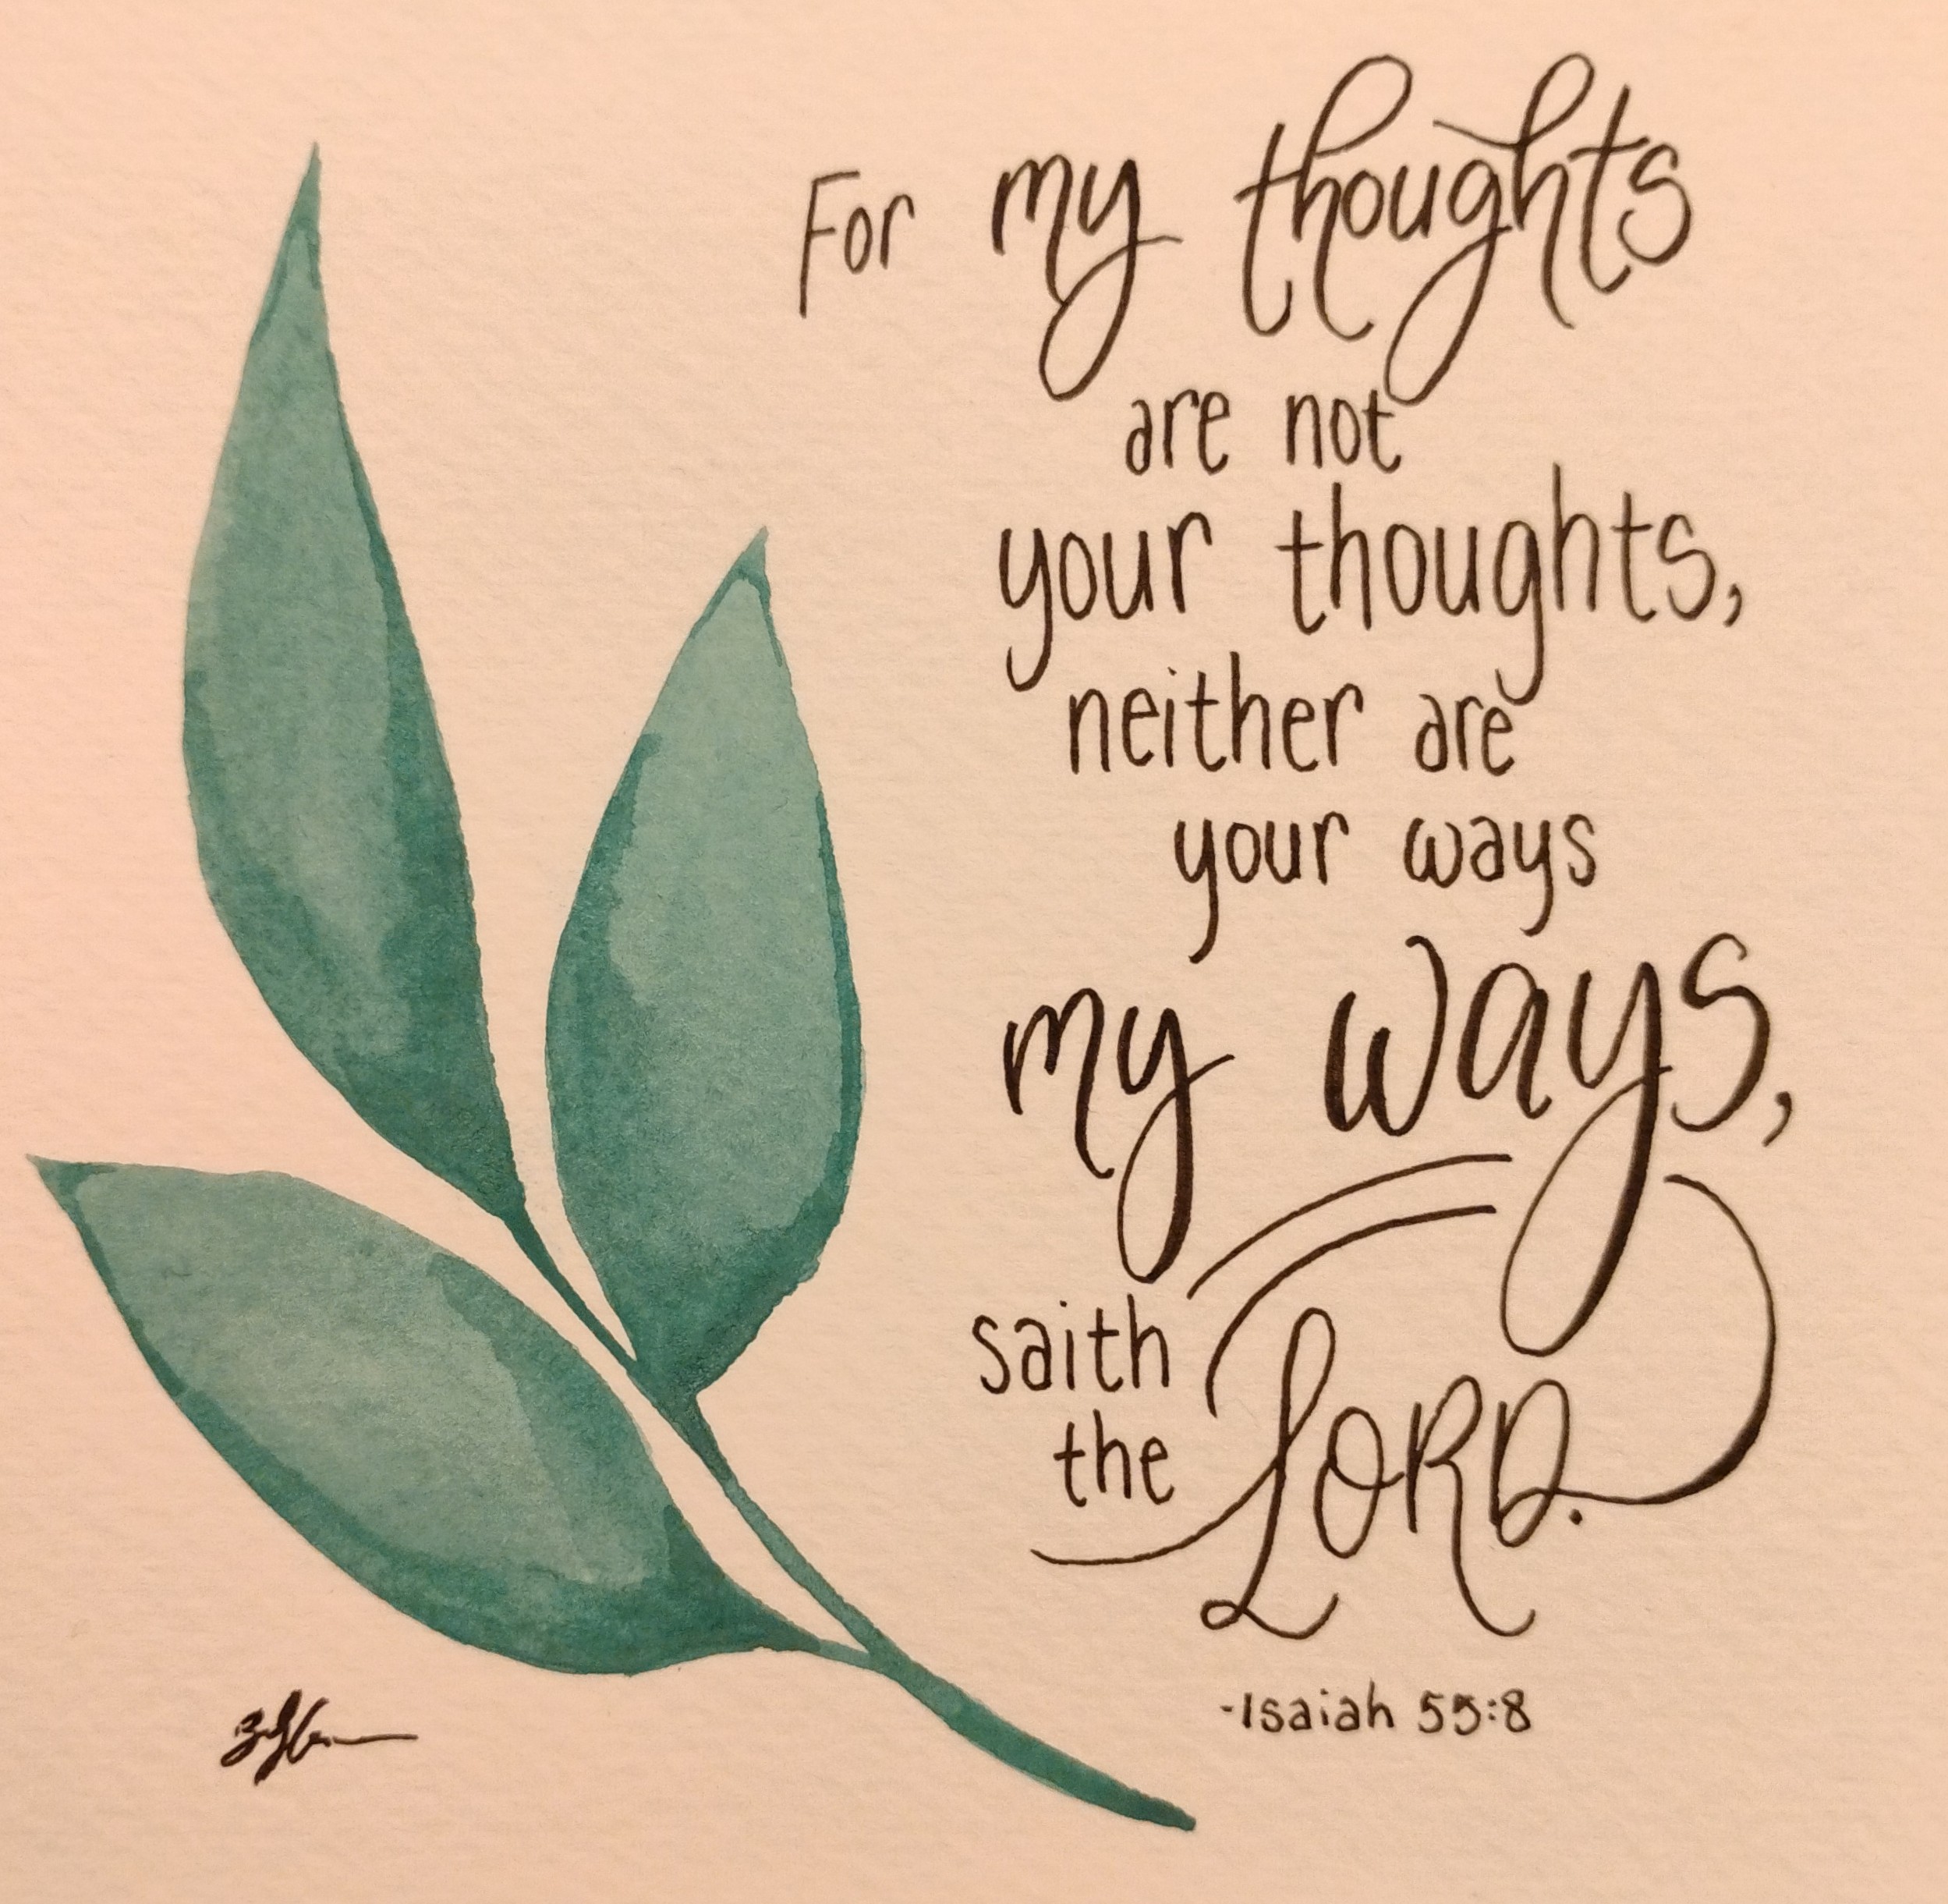 For my thoughts
are not
your thoughts,
neither are
your ways
my ways,
saith
the LORD.
-Isaiah 55:8